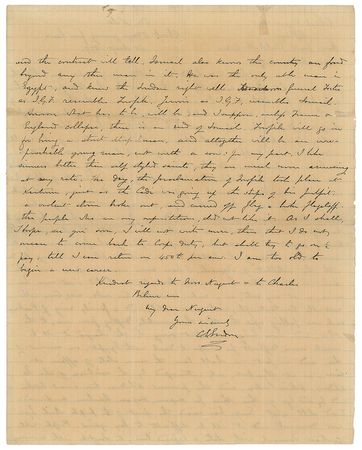 and the contrast will tell. Ismail also knows the country au fond
beyond any other man in it. He was the only able man in
Egypt, and knew the Sudan right well.
as I.G.F. resembles Tewfik,
has to be, will be, and I suppose, unless France &
England collapse, there is an end of Ismail. Tewfik will go on
and altogether will be an
young man, not with a son: for my part, I like
sinners better than self styled saints, they are much more amusing
at any rate. The day, the proclamation of Tewfik took place at
Kartoum, just as the Cadi was going up the steps of the pulpit,
a violent storm broke out, and carried off flag & broke flagstaff,
the people who are very superstitious, did not like it. As I shall,
I hope, see you soon, I will not write more, than that I do not
mean to come back to Corps duty, but shall try to go on ½
pay, till I can retire on 400£ per ann. I am too old to
begin a new career.
Kindest regards to Mrs Nugent & to Charlie
Believe me
My dear Nugent
Yours sincerely
C G Gordon